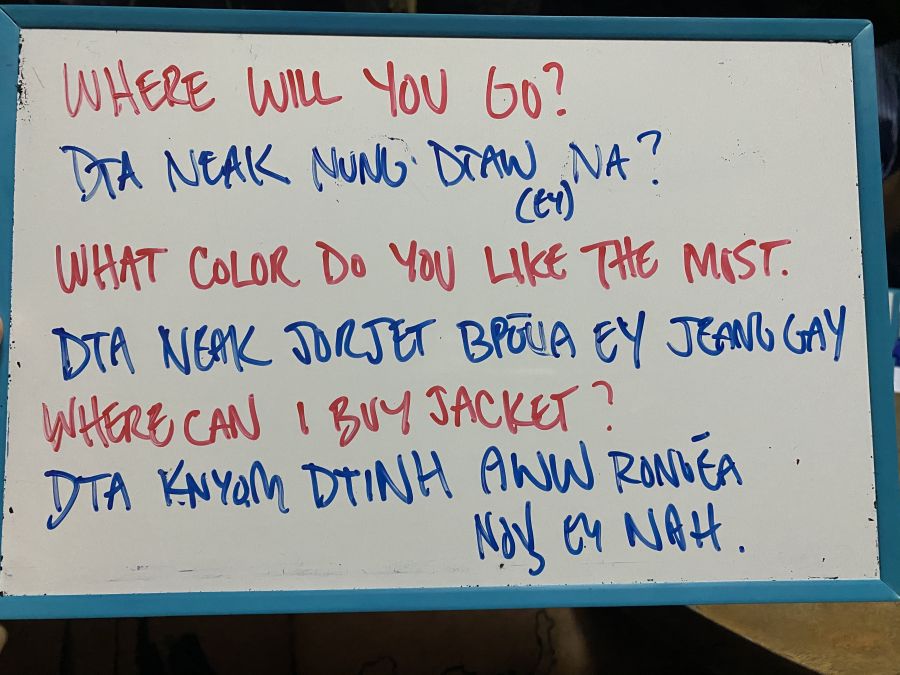 WHERE WILL YOU GO?
DTA NEAK NUNG DTAW NA?
(EY)
WHAT COLOR DO YOU LIKE THE MOST.
DTA NEAK JORJET BPŌUA EY JEANG GAY
WHERE CAN I BUY JACKET?
DTA KNYOM DTINH AWW RONGĒA
NOV EY NAH.